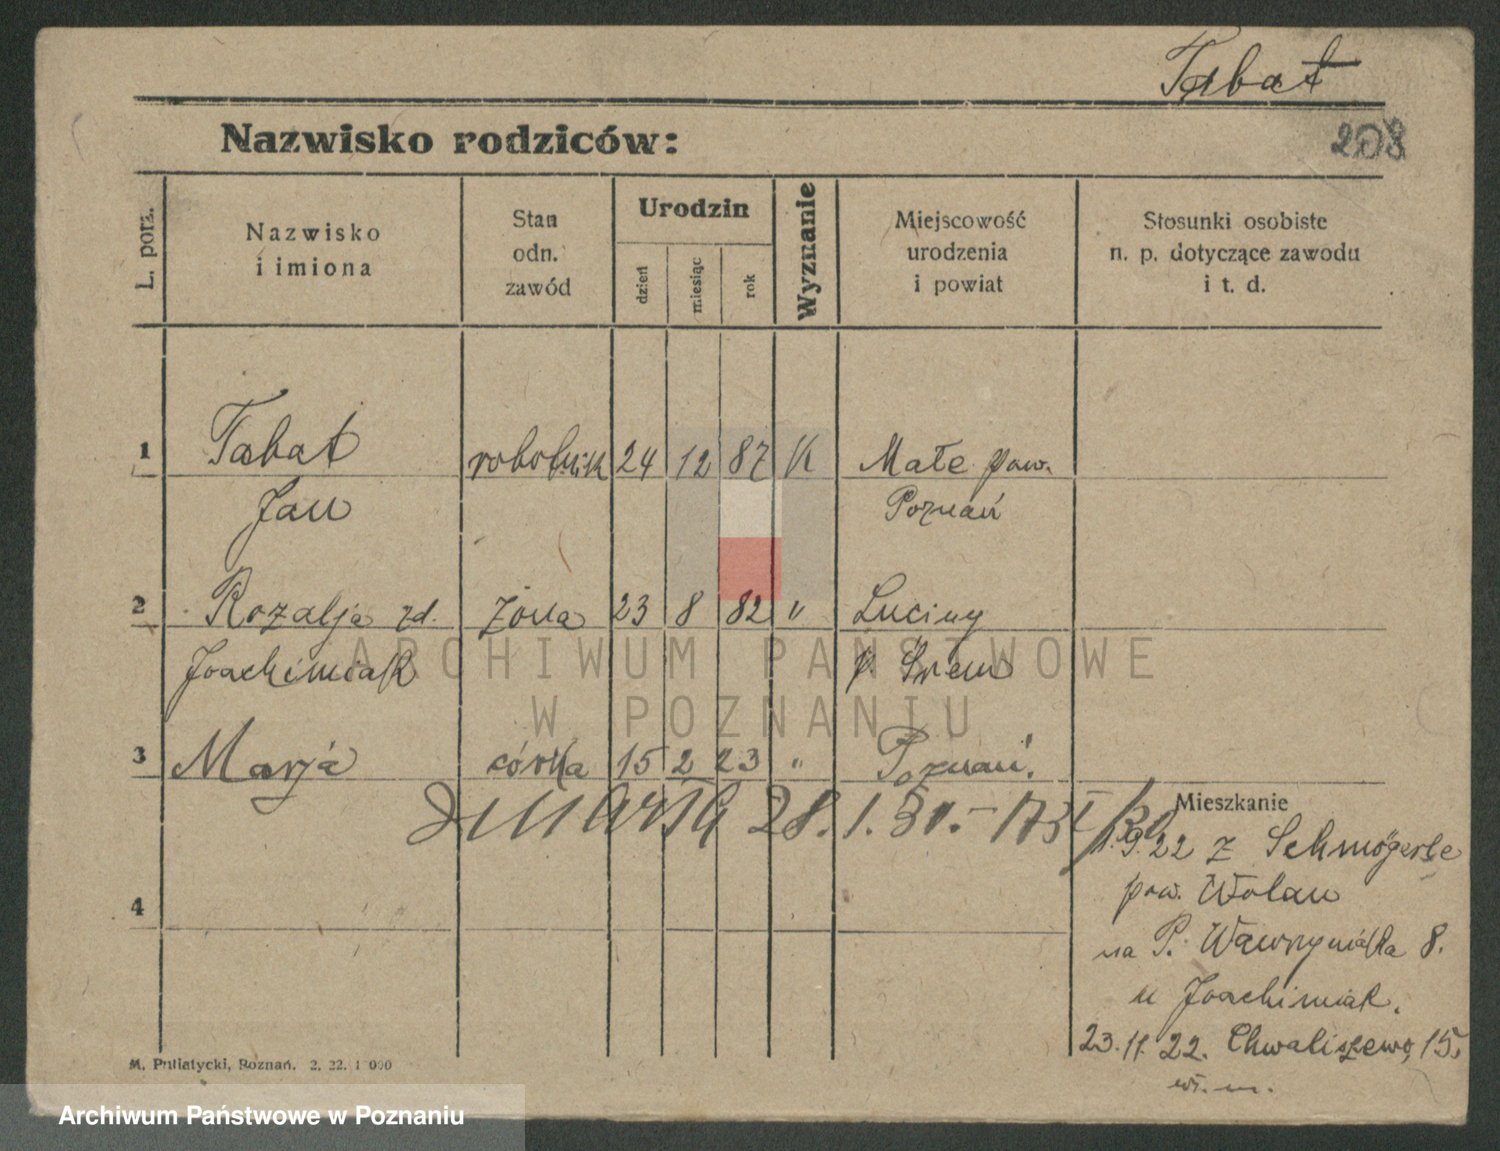 Tabat
Nazwisko rodziców:
208
L. porz.
Nazwisko
i imiona
Stan
odn.
zawód
Urodzin
dzień
miesiąc
rok
Wyznanie
Miejscowość
urodzenia
i powiat
Stosunki osobiste
n. p. dotyczące zawodu
i t. d.
1 Tabat robotnik 24 12 87 K Małe pow.
Jan Poznań
2 Rozalja zd. żona 23 8 82 " Luciny
Joachimiak p. Śrem
3 Marja córka 15 2 23 " Poznań.
zmarła 28. 1. 30. -
Mieszkanie
9.22 z Schmögerle
pow. Wolau
4
na P. Wawrzyniaka 8.
u Joachimiak.
23.11.22. Chwaliszewo, 15.
wł. m.
M. Putiatycki, Poznań. 2. 22. 1 000
ARCHIWUM PAŃSTWOWE
W POZNANIU
Archiwum Państwowe w Poznaniu